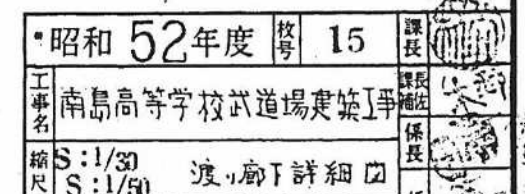 昭和52年度 枚号 15 課長
工事名 南島高等学校武道場建築工事 課長補佐
係長
縮尺 S:1/30 S:1/50 渡り廊下詳細図